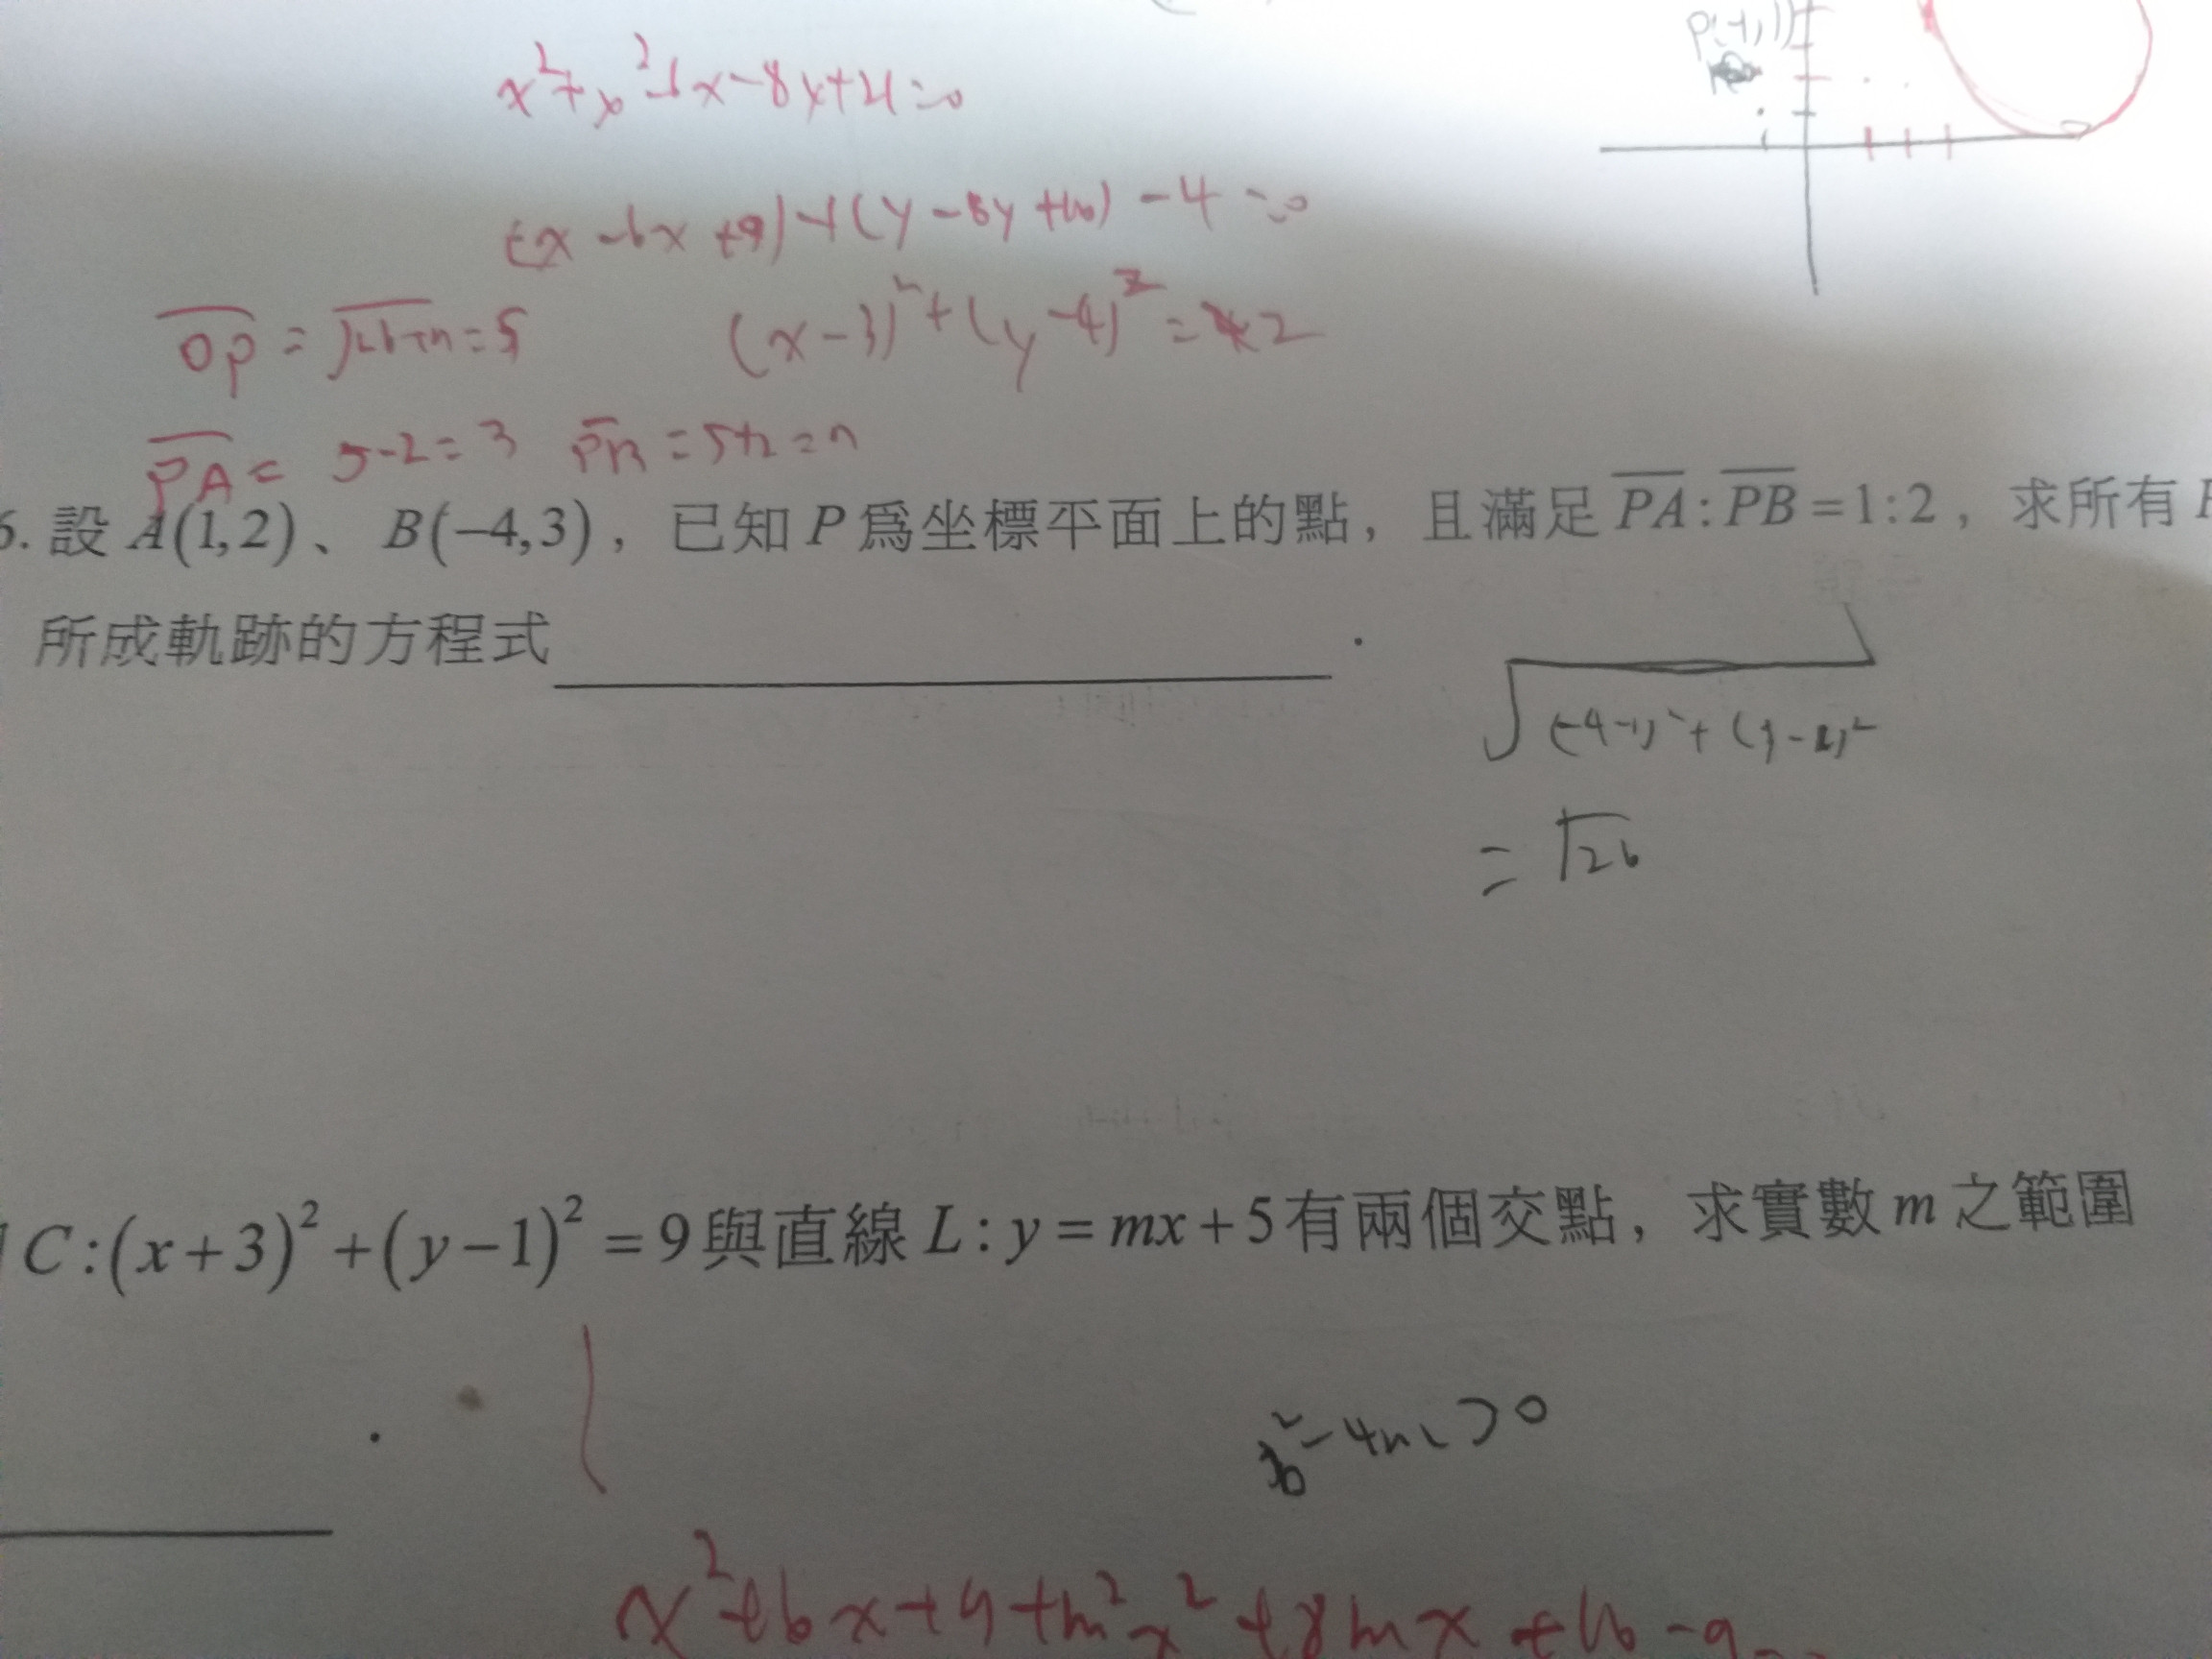 P(-1,1)
x²+y²-6x-8y+21=0
(x-6x+9)+(y-8y+16)-4=0
OP = =5
(x-3)²+(y-4)²=2
PA = 5-2=3 PB =5+2=7
6. 設 A(1,2)、B(−4,3)，已知 P 為坐標平面上的點，且滿足 PA:PB=1:2，求所有 P
所成軌跡的方程式 .
√(-4-1)²+(3-2)²
=√26
C:(x+3)²+(y−1)²=9與直線 L:y=mx+5有兩個交點，求實數 m 之範圍
.
b²-4ac>0
x²+6x+9+m²x²+8mx+16-9=0